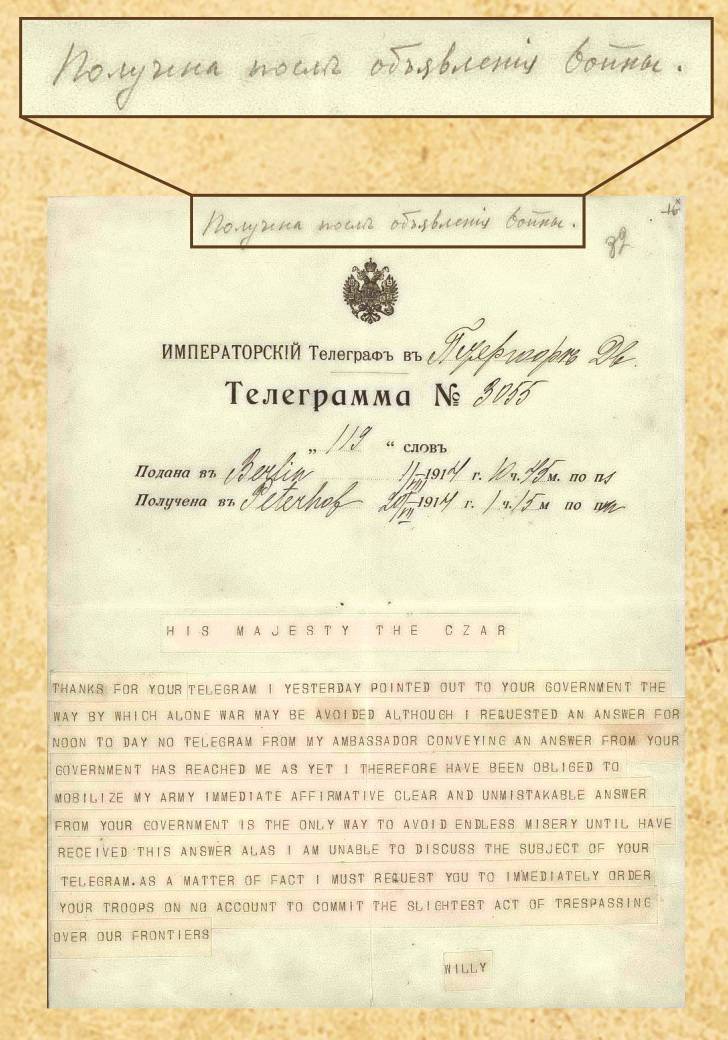 Получена послѣ объявленія войны.
Получена послѣ объявленія войны.
ИМПЕРАТОРСКІЙ Телеграфъ въ Петергофъ Дв.
Телеграмма № 3055
„ 119 “ словъ
Подана въ Berlin 1/VIII 1914 г. 10 ч. 45 м. по п
Получена въ Peterhof 20/VII 1914 г. 1 ч. 15 м по п
HIS MAJESTY THE CZAR
THANKS FOR YOUR TELEGRAM I YESTERDAY POINTED OUT TO YOUR GOVERNMENT THE
WAY BY WHICH ALONE WAR MAY BE AVOIDED ALTHOUGH I REQUESTED AN ANSWER FOR
NOON TO DAY NO TELEGRAM FROM MY AMBASSADOR CONVEYING AN ANSWER FROM YOUR
GOVERNMENT HAS REACHED ME AS YET I THEREFORE HAVE BEEN OBLIGED TO
MOBILIZE MY ARMY IMMEDIATE AFFIRMATIVE CLEAR AND UNMISTAKABLE ANSWER
FROM YOUR GOVERNMENT IS THE ONLY WAY TO AVOID ENDLESS MISERY UNTIL HAVE
RECEIVED THIS ANSWER ALAS I AM UNABLE TO DISCUSS THE SUBJECT OF YOUR
TELEGRAM.AS A MATTER OF FACT I MUST REQUEST YOU TO IMMEDIATELY ORDER
YOUR TROOPS ON NO ACCOUNT TO COMMIT THE SLIGHTEST ACT OF TRESPASSING
OVER OUR FRONTIERS
WILLY